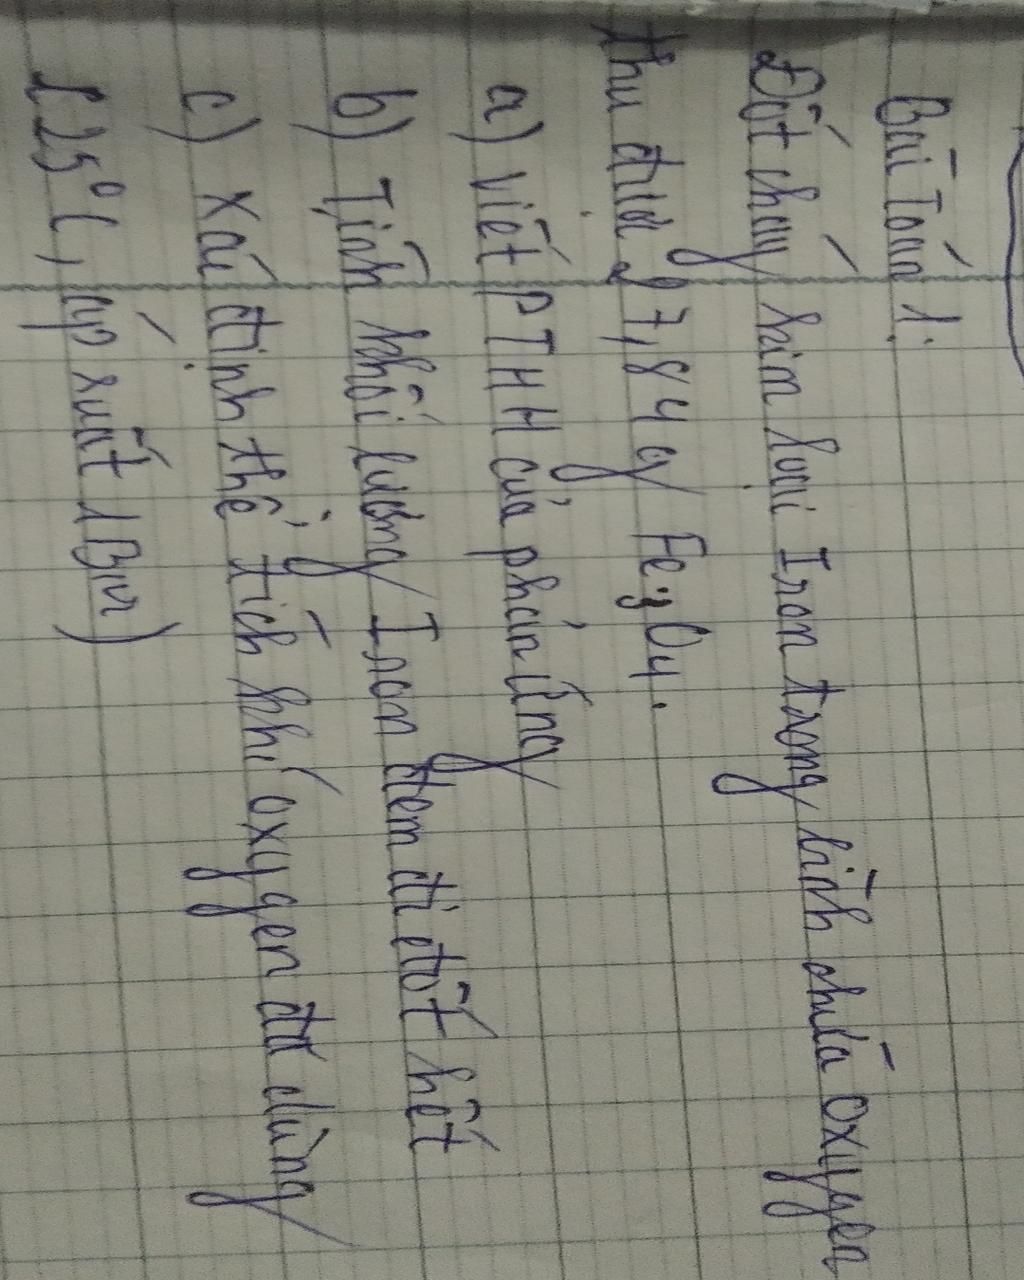 Bài Toán 1:
Đốt cháy kim loại Iron trong bình chứa oxygen
thu được 27,84 g Fe3O4.
a) Viết PTHH của phản ứng
b) Tính khối lượng Iron đem đi đốt hết
c) Xác định thể tích khí oxygen đã dùng
(25°C, áp suất 1 Bar)